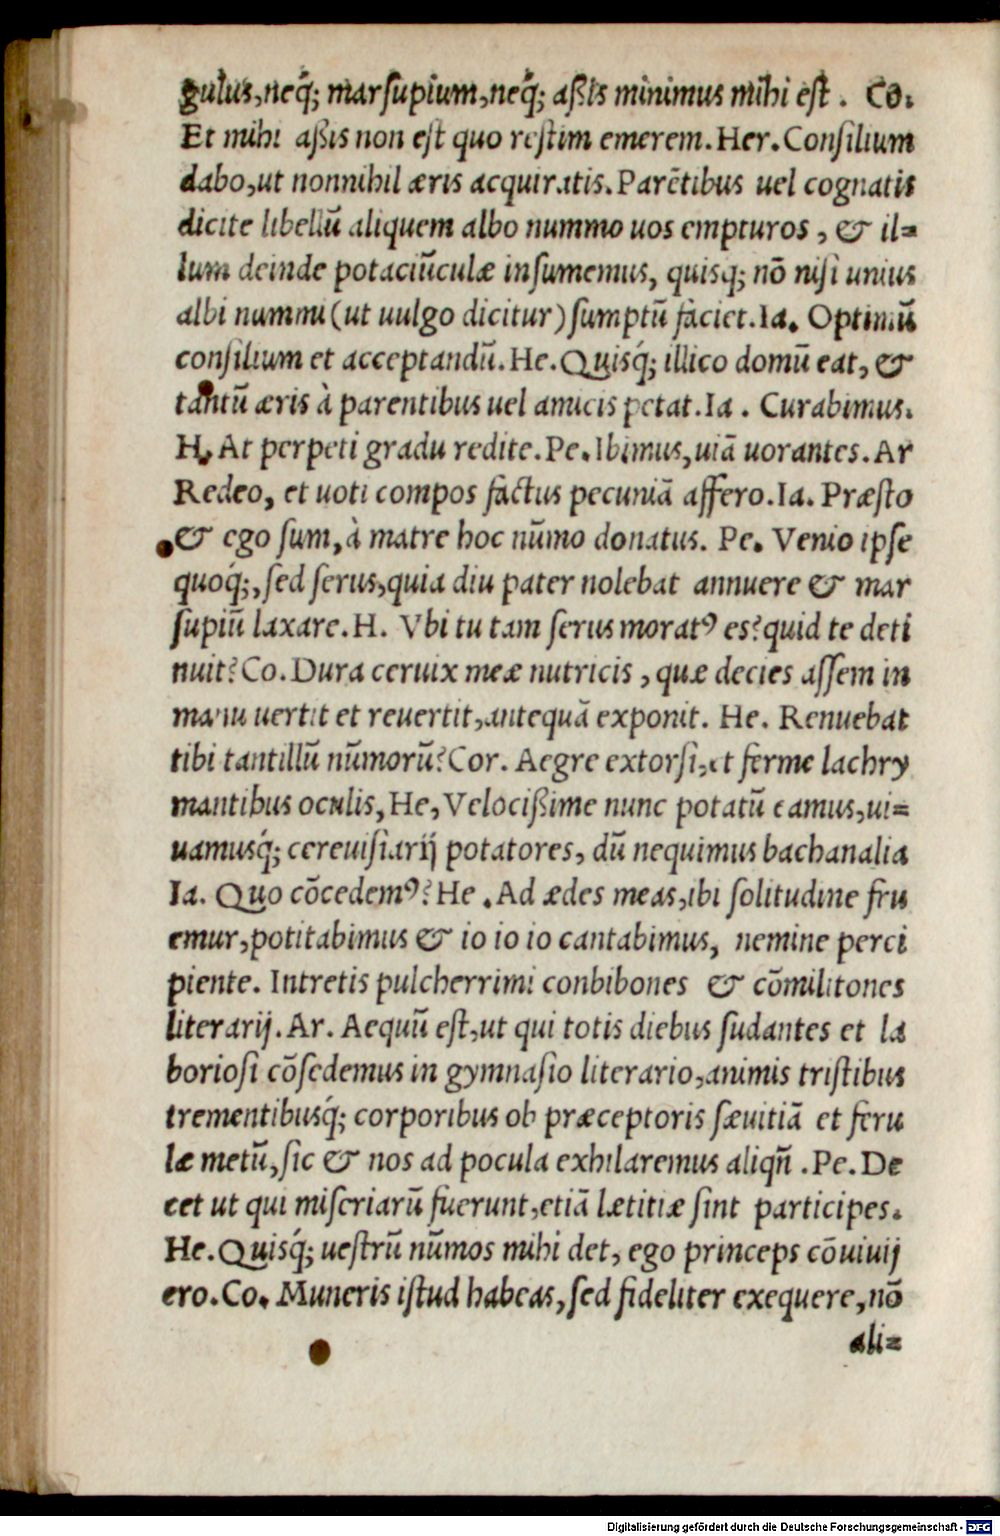 gulus, neq́; marsupium, neq́; aßis minimus mihi est. Co.
Et mihi aßis non est quo restim emerem. Her. Consilium
dabo, ut nonnihil æris acquiratis. Parẽtibus uel cognatis
dicite libellũ aliquem albo nummo uos empturos, & il=
lum deinde potaciũculæ insumemus, quisq; nõ nisi unius
albi nummi (ut uulgo dicitur) sumptũ faciet. Ia. Optimũ
consilium et acceptandũ. He. Quisq́; illico domũ eat, &
tantũ æris à parentibus uel amicis petat. Ia. Curabimus.
H. At perpeti gradu redite. Pe. Ibimus, uiã uorantes. Ar
Redeo, et uoti compos factus pecuniã affero. Ia. Præsto
& ego sum, à matre hoc nũmo donatus. Pe. Venio ipse
quoq́;, sed serus, quia diu pater nolebat annuere & mar
supiũ laxare. H. Vbi tu tam serus moratꝰ es? quid te deti
nuit? Co. Dura ceruix meæ nutricis, quæ decies assem in
manu uertit et reuertit, antequã exponit. He. Renuebat
tibi tantillũ nũmorũ? Cor. Aegre extorsi, et ferme lachry
mantibus oculis, He, Velocißime nunc potatũ eamus, ui=
uamusq́; cereuisiarij potatores, dũ nequimus bachanalia
Ia. Quo cõcedemꝰ? He. Ad ædes meas, ibi solitudine fru
emur, potitabimus & io io io cantabimus, nemine perci
piente. Intretis pulcherrimi conbibones & cõmilitones
literarij. Ar. Aequũ est, ut qui totis diebus sudantes et la
boriosi cõsedemus in gymnasio literario, animis tristibus
trementibusq́; corporibus ob præceptoris sæuitiã et feru
læ metũ, sic & nos ad pocula exhilaremus aliqñ. Pe. De
cet ut qui miseriarũ fuerunt, etiã lætitiæ sint participes.
He. Quisq́; uestrũ nũmos mihi det, ego princeps cõuiuij
ero. Co. Muneris istud habeas, sed fideliter exequere, nõ
ali=
Digitalisierung gefördert durch die Deutsche Forschungsgemeinschaft - DFG